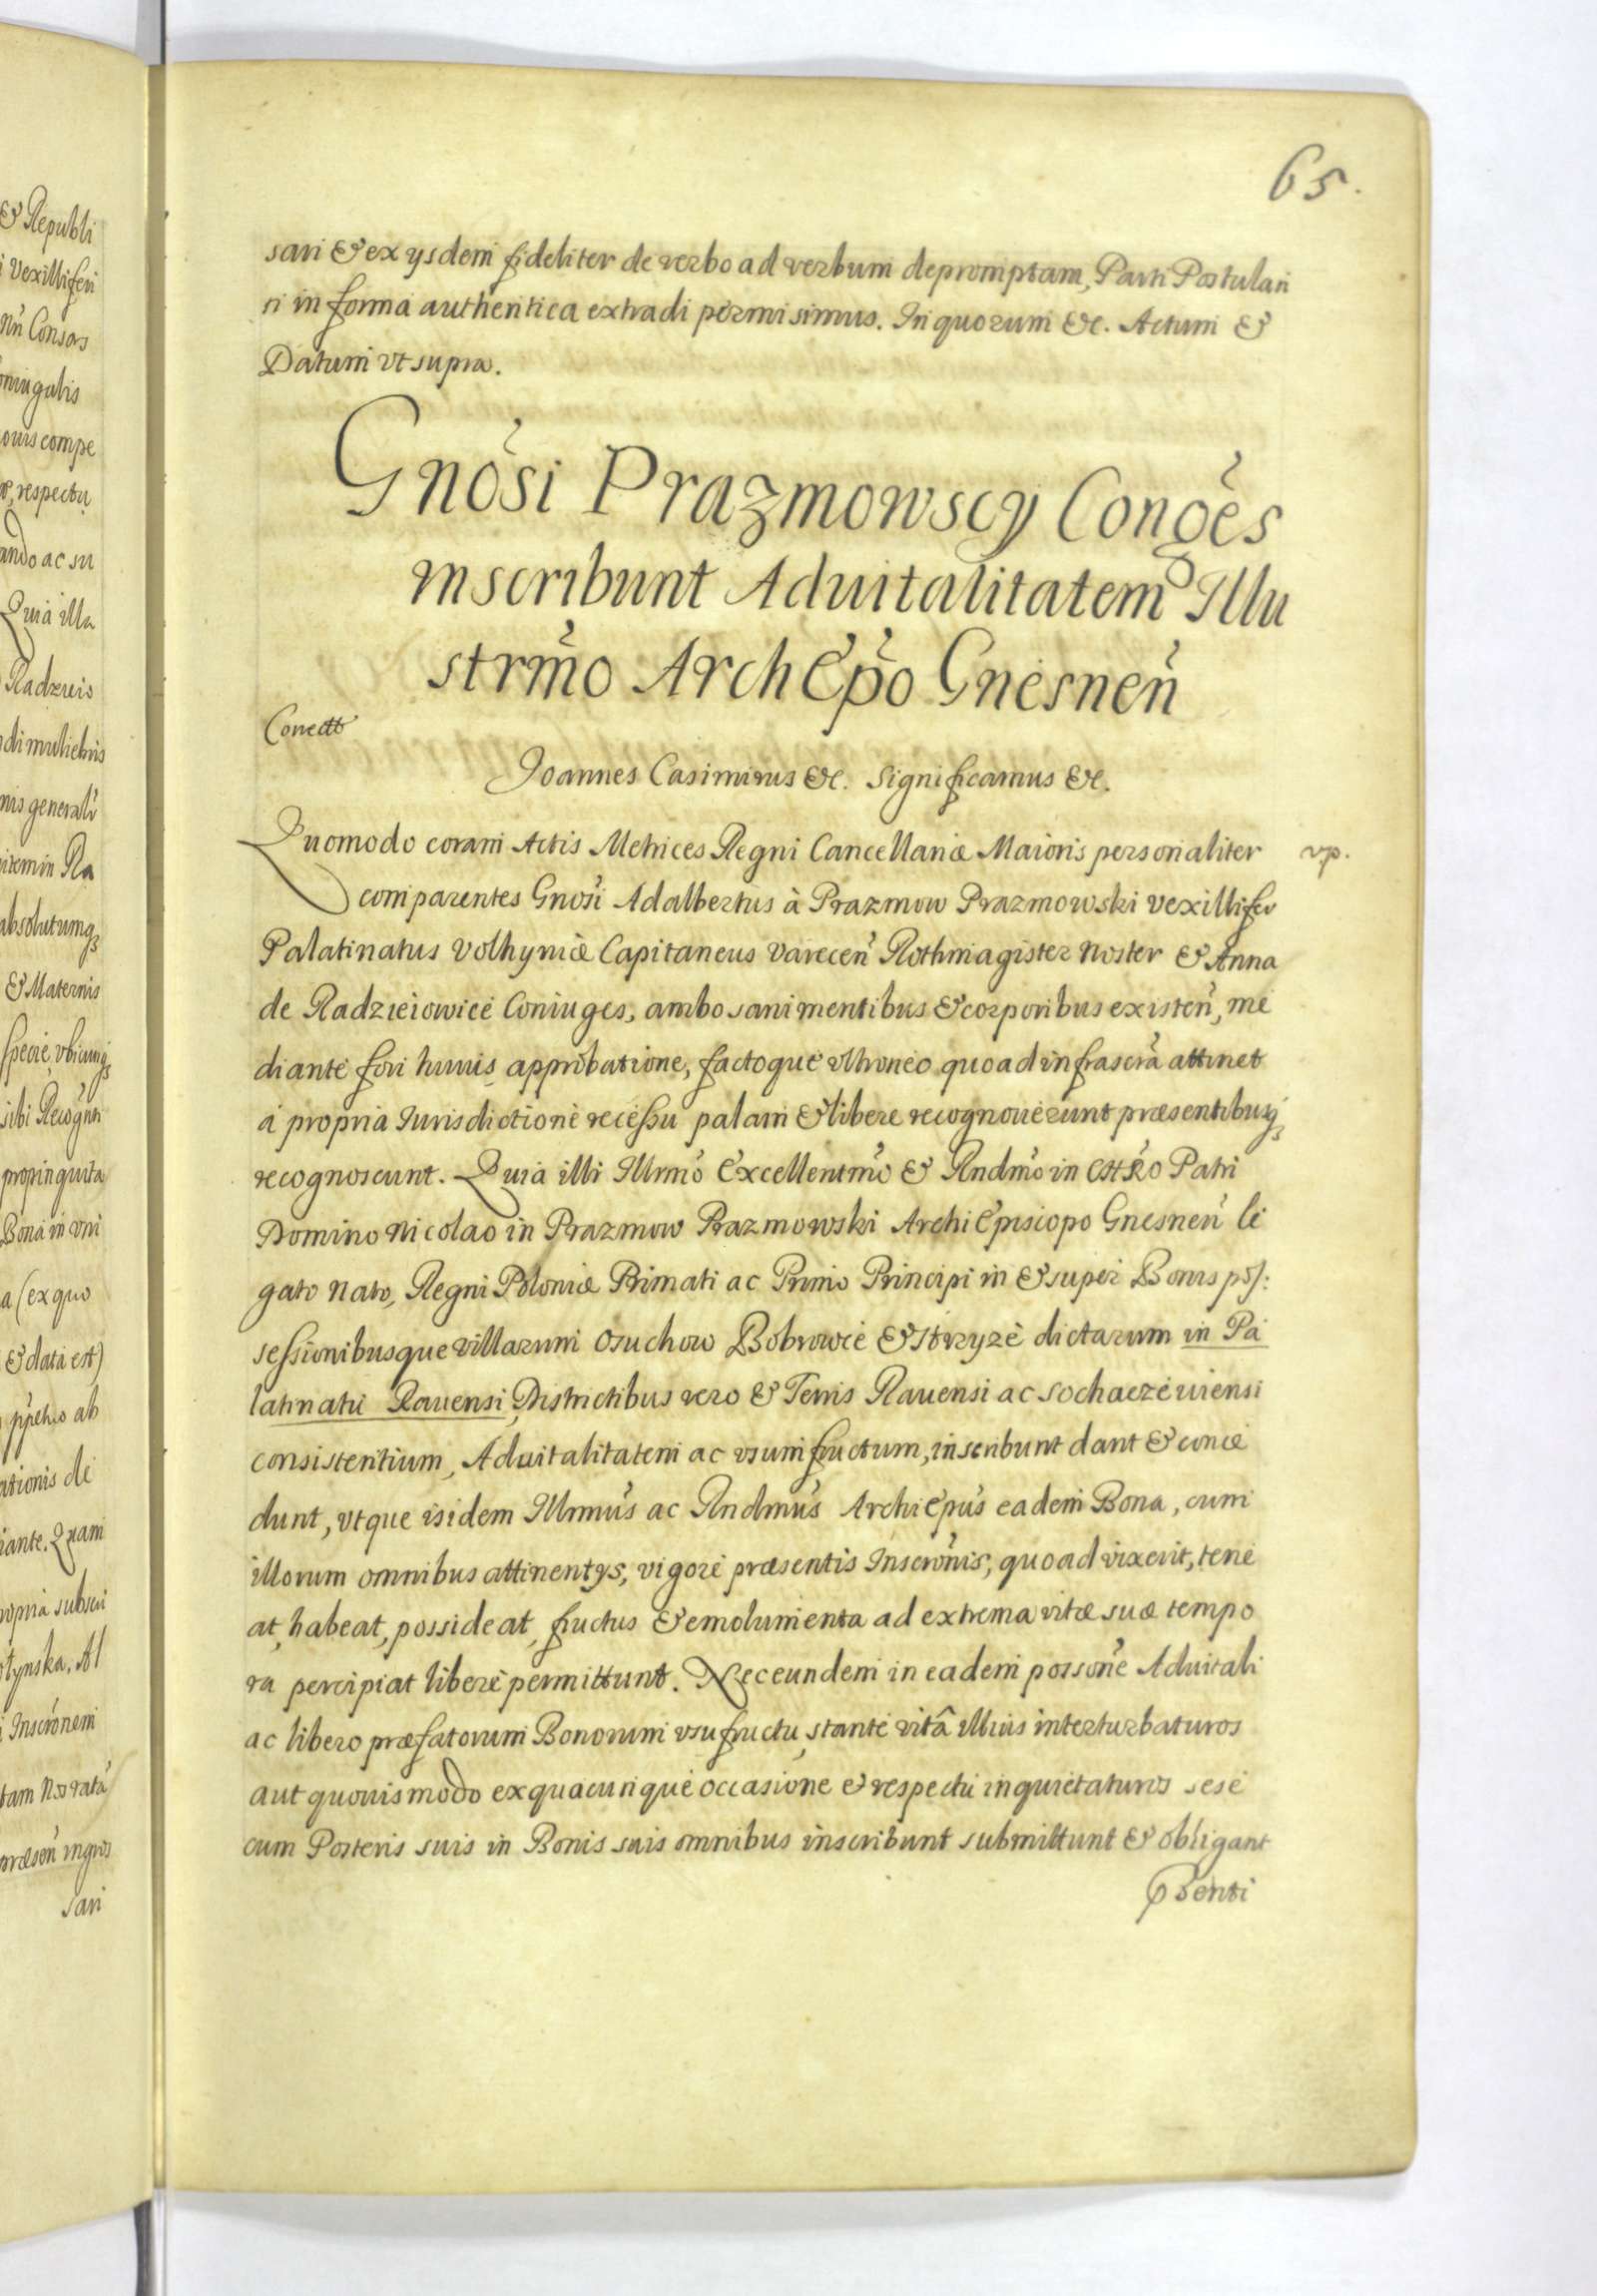 65.
sari & ex ysdem fideliter de verbo ad verbum depromptam, Parti Postulan
ti in forma authentica extradi permisimus. In quorum &c. Actum &
Datum vt supra.
Gnosi Prazmowscy Conges
inscribunt Aduitalitatem Illu
strmo ArchEpo Gnesnen
Joannes Casimirus &c. significamus &c.
Quomodo coram Actis Metrices Regni Cancellariæ Maioris personaliter vp.
comparentes Gnosi Adalbertus à Prazmow Prazmowski vexillifer
Palatinatus Volhyniæ Capitaneus Varecen Rothmagister Noster & Anna
de Radzieiowice Coniuges, ambo sani mentibus & corporibus existen, me
diante fori huius approbatione, factoque vltroneo quoad infrascra attinet
a propria Iurisdictione recessu palam & libere recognouerunt præsentibusq
recognoscunt. Quia illi Illrmo Excellentmo & Rndmo in CHRO Patri
Domino Nicolao in Prazmow Prazmowski ArchiEpisiopo Gnesnen le
gato Nato, Regni Poloniæ Primati ac Primo Principi in & super Bonis pos:
sessionibusque villarum Osuchow Bobrowce & Strzyze dictarum in Pa
latinatu Rauensi, Districtibus vero & Terris Rauensi ac Sochaczeuiensi
consistentium, Aduitalitatem ac vsumfructum, inscribunt dant & conce
dunt, vtque isidem Illrmus ac Rndmus ArchiEpus eadem Bona, cum
illorum omnibus attinentys, vigore præsentis Inscronis, quoad vixerit, tene
at, habeat, possideat, fructus & emolumenta ad extrema vitæ suæ tempo
ra percipiat libere permittunt. Nec eundem in eadem possone Aduitali
ac libero præfatorum Bonorum vsufructu, stante vitâ illius interturbaturos
aut quouismodo ex quacunque occasione et respectu inquietaturos sese
cum Posteris suis in Bonis suis omnibus inscribunt submittunt & obligant
Psenti
& Republi
Vexilliferi
Consors
oniugalis
ouis compe
respectu
ando ac su
Quia illa
Radzieio
di muliebris
nis generali
item in Ra
absolutumq
& Maternis
specie, vbicunq
sibi Recogn
propinquita
Bona in vni
a (ex quo
& data est)
ationis de
iante. Quam
ropria subscri
Al
Inscronem
tam Nos rata
sari